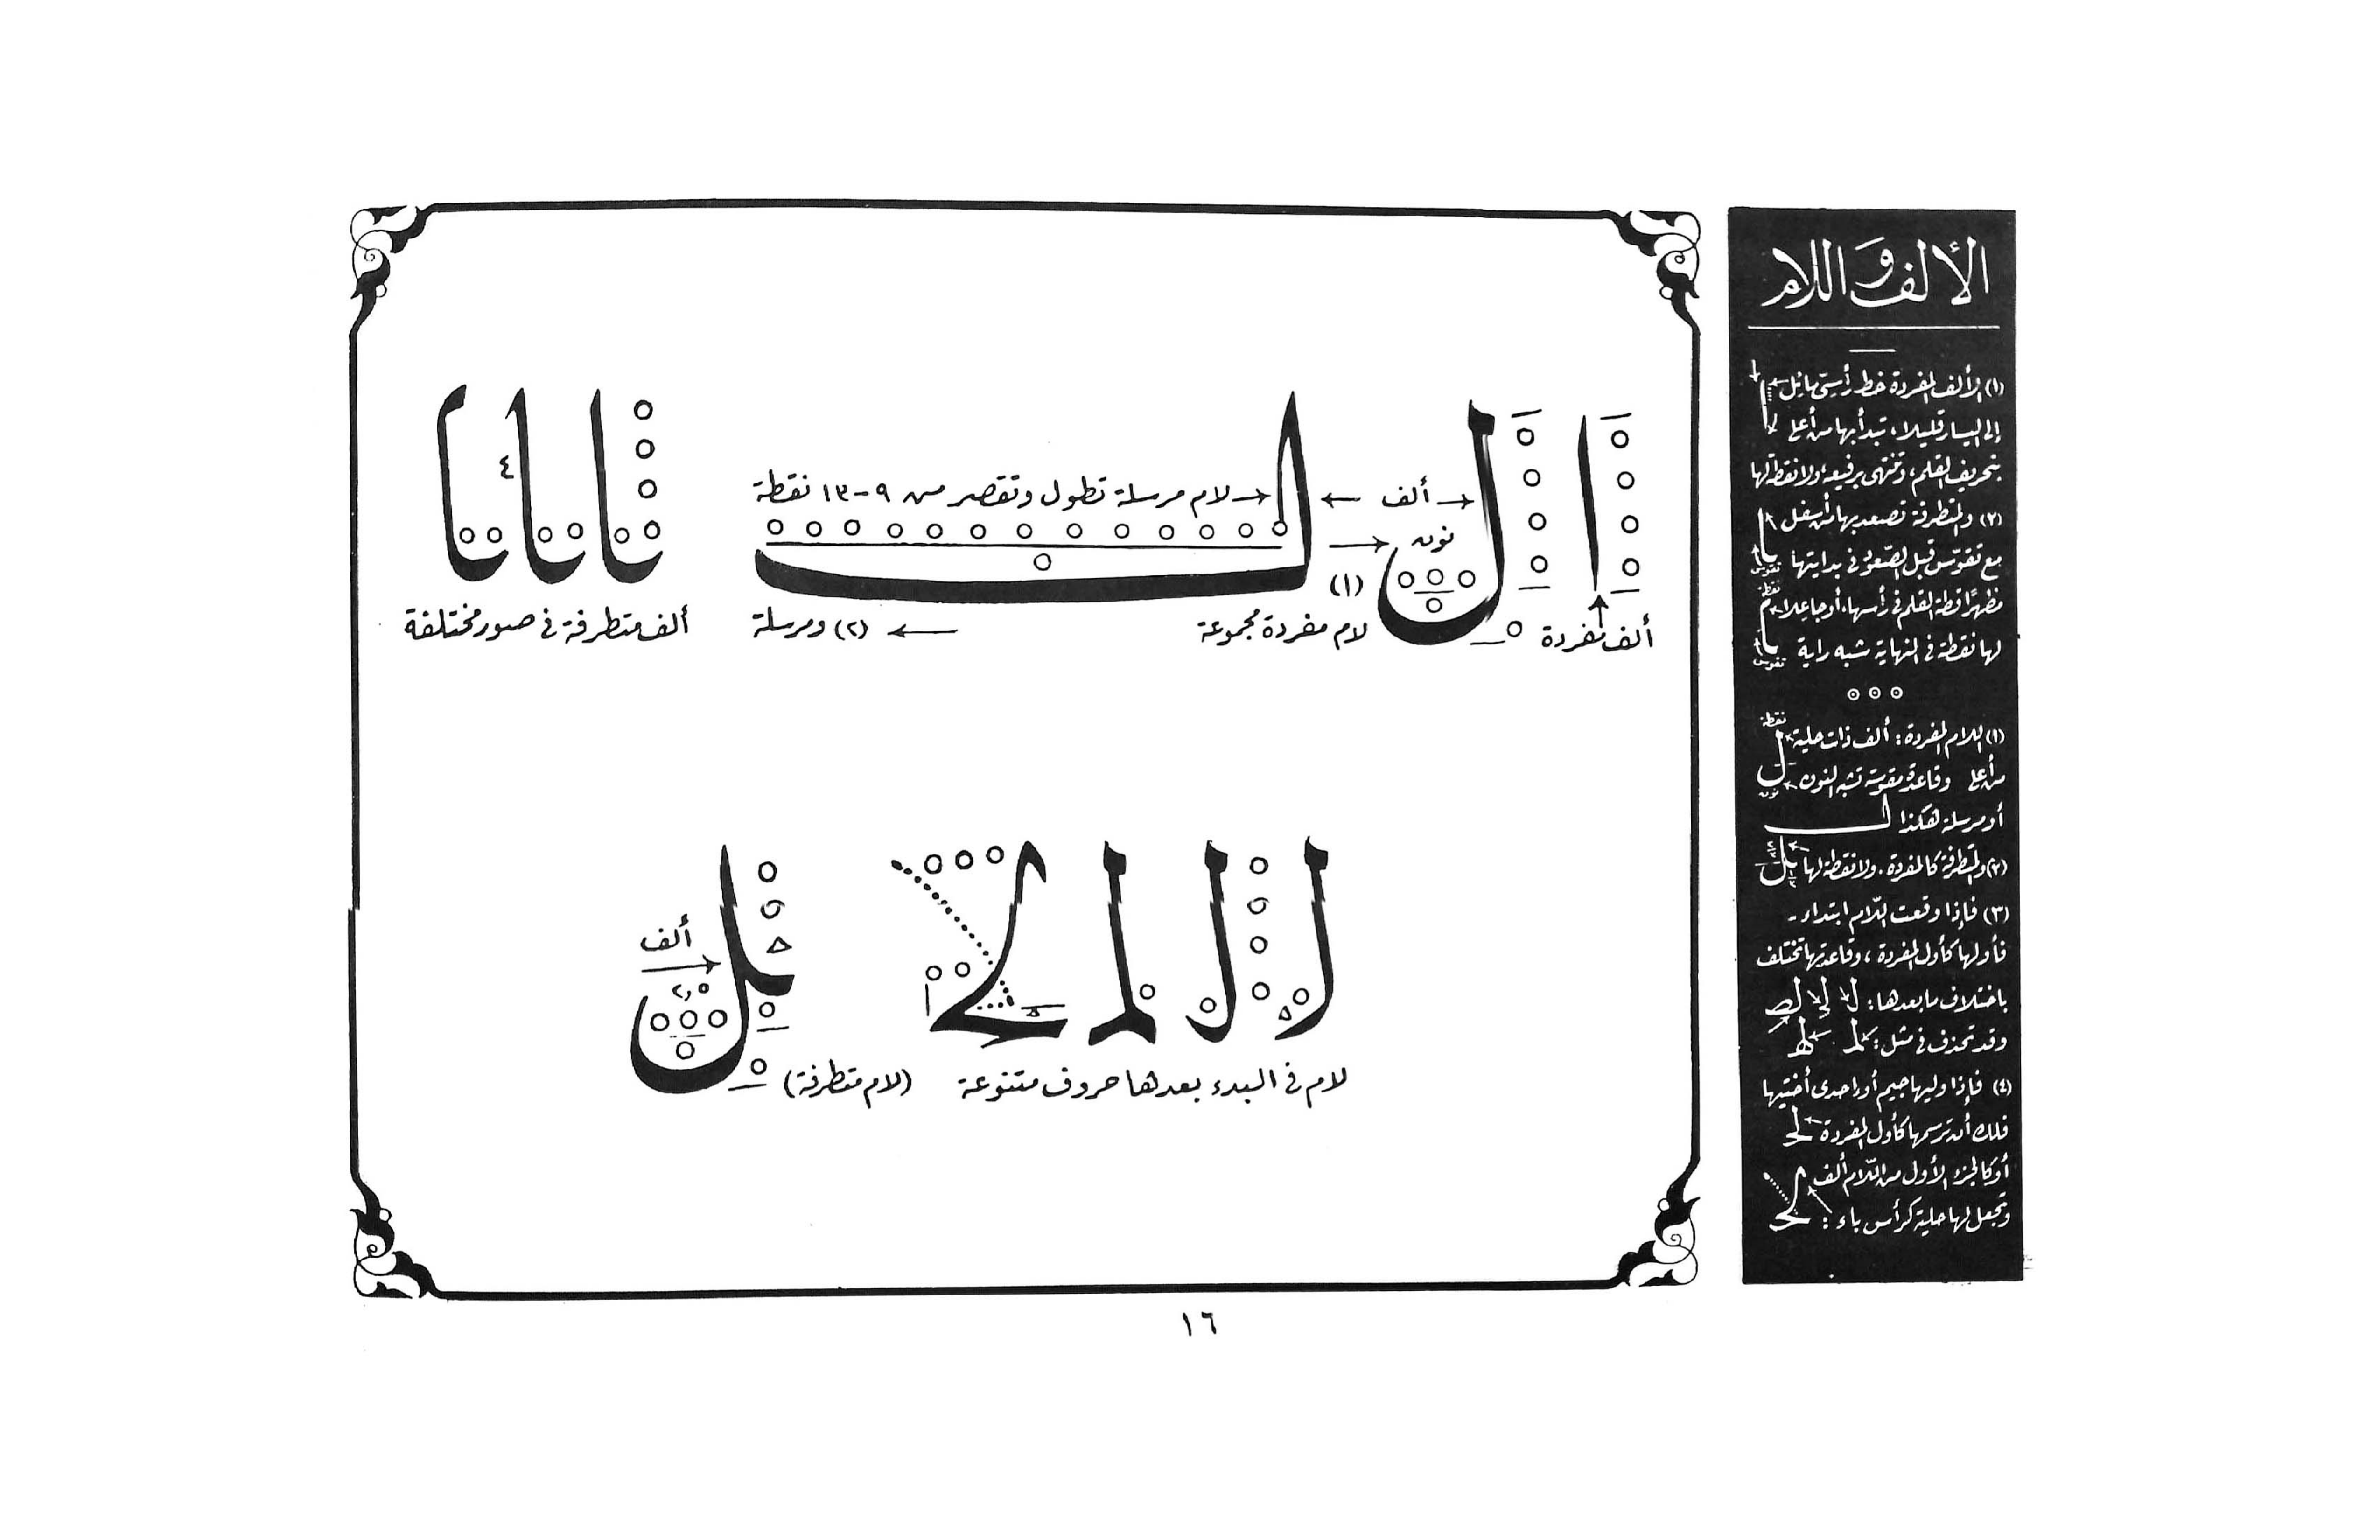 الألف واللام
(١) والألف المفردة خط رأسيّ مائل
إلى اليسار قليلاً، تبدأ بها من أعلى
بتحريف القلم، وتنتهي برفيعه، ولا نقطة لها
(٢) والمتطرفة تصعد بها من أسفل
مع تقوّس قبل الصّعود في بدايتها
تقوس
مظهرًا قطة القلم في رأسها، أو جاعلا
نقطة
لها نقطة في النهاية شبه راية
تقوس
نقطة
(١) اللام المفردة: ألف ذات حلية
من أعلى وقاعدة مقوسة تشبه النون
نون
أو مرسلة هكذا لـ
(٢) والمتطرفة كالمفردة. ولا نقطة لها
(٣) فإذا وقعت اللّام ابتداء -
فأولها كأول المفردة، وقاعدتها تختلف
باختلاف ما بعدها:
وقد تحذف في مثل:
(٤) فإذا وليها جيم أو إحدى أختيها
فلك أن ترسمها كأول المفردة لحـ
أو كالجزء الأول من اللّام ألف
وتجعل لها حلية كرأس باء:
ا ل
ألف
نون
لام مرسلة تطول وتقصر من ٩-١٣ نقطة
٤
(١)
ألف مفردة
لام مفردة مجموعة
(٢) ومرسلة
ألف متطرفة في صور مختلفة
ألف
٢,٥
لام في البدء بعدها حروف متنوعة
(لام متطرفة)
١٦